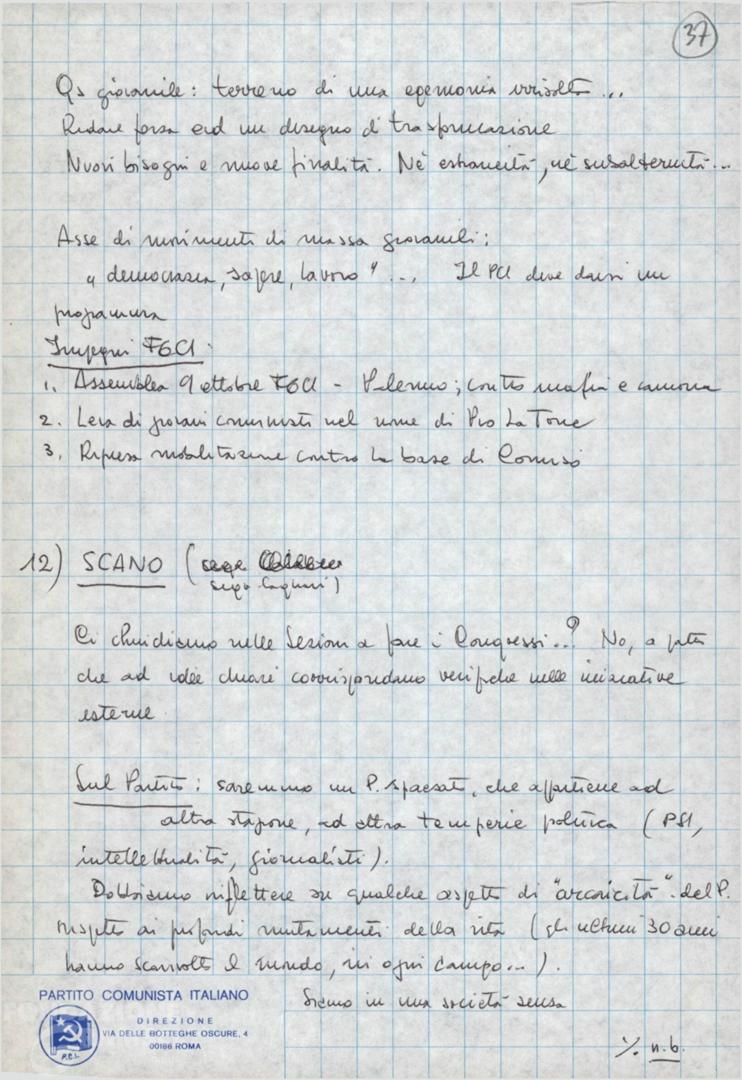 37
Qs giovanile: terreno di una egemonia irrisolta...
Ridare forza ad un disegno di trasformazione
Nuovi bisogni e nuove finalità. Né estraneità, né subalternità...
Asse di movimenti di massa giovanili:
"democrazia, sapere, lavoro"... Il PCI deve darsi un
programma
Impegni FGCI.
1. Assemblea 9 ottobre FGCI - Palermo; contro mafia e camorra
2. Leva di giovani comunisti nel nome di Pio La Torre
3. Ripresa mobilitazione contro la base di Comiso
12) SCANO (segr
segr Cagliari)
Ci chiudiamo nelle Sezioni a fare i Congressi...? No, a patto
che ad idee chiare corrispondano verifiche nelle iniziative
esterne.
Sul Partito: saremmo un P. spaesato, che appartiene ad
altra stagione, ad altra temperie politica (PSI,
intellettualità, giornalisti).
Dobbiamo riflettere su qualche aspetto di "arcaicità" del P.
rispetto ai profondi mutamenti della vita (gli ultimi 30 anni
hanno sconvolto il mondo, in ogni campo...).
Siamo in una società senza
PARTITO COMUNISTA ITALIANO
DIREZIONE
VIA DELLE BOTTEGHE OSCURE, 4
00186 ROMA
P.C.I.
%. n.b.